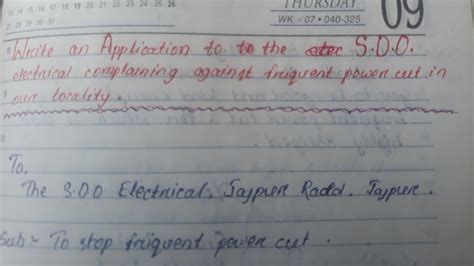 THURSDAY
WK - 07 • 040-325
09
13 14 15 16 17 18 19 20 21 22 23 24 25 26
27 28 29 30 31
8
Write an Application to to the S.D.O.
electrical complaining against friquent power cut in
9
our locality.
10
To,
The S.D.O Electrical, Jaypur Road, Jaypur.
Sub:- To stop friquent power cut.